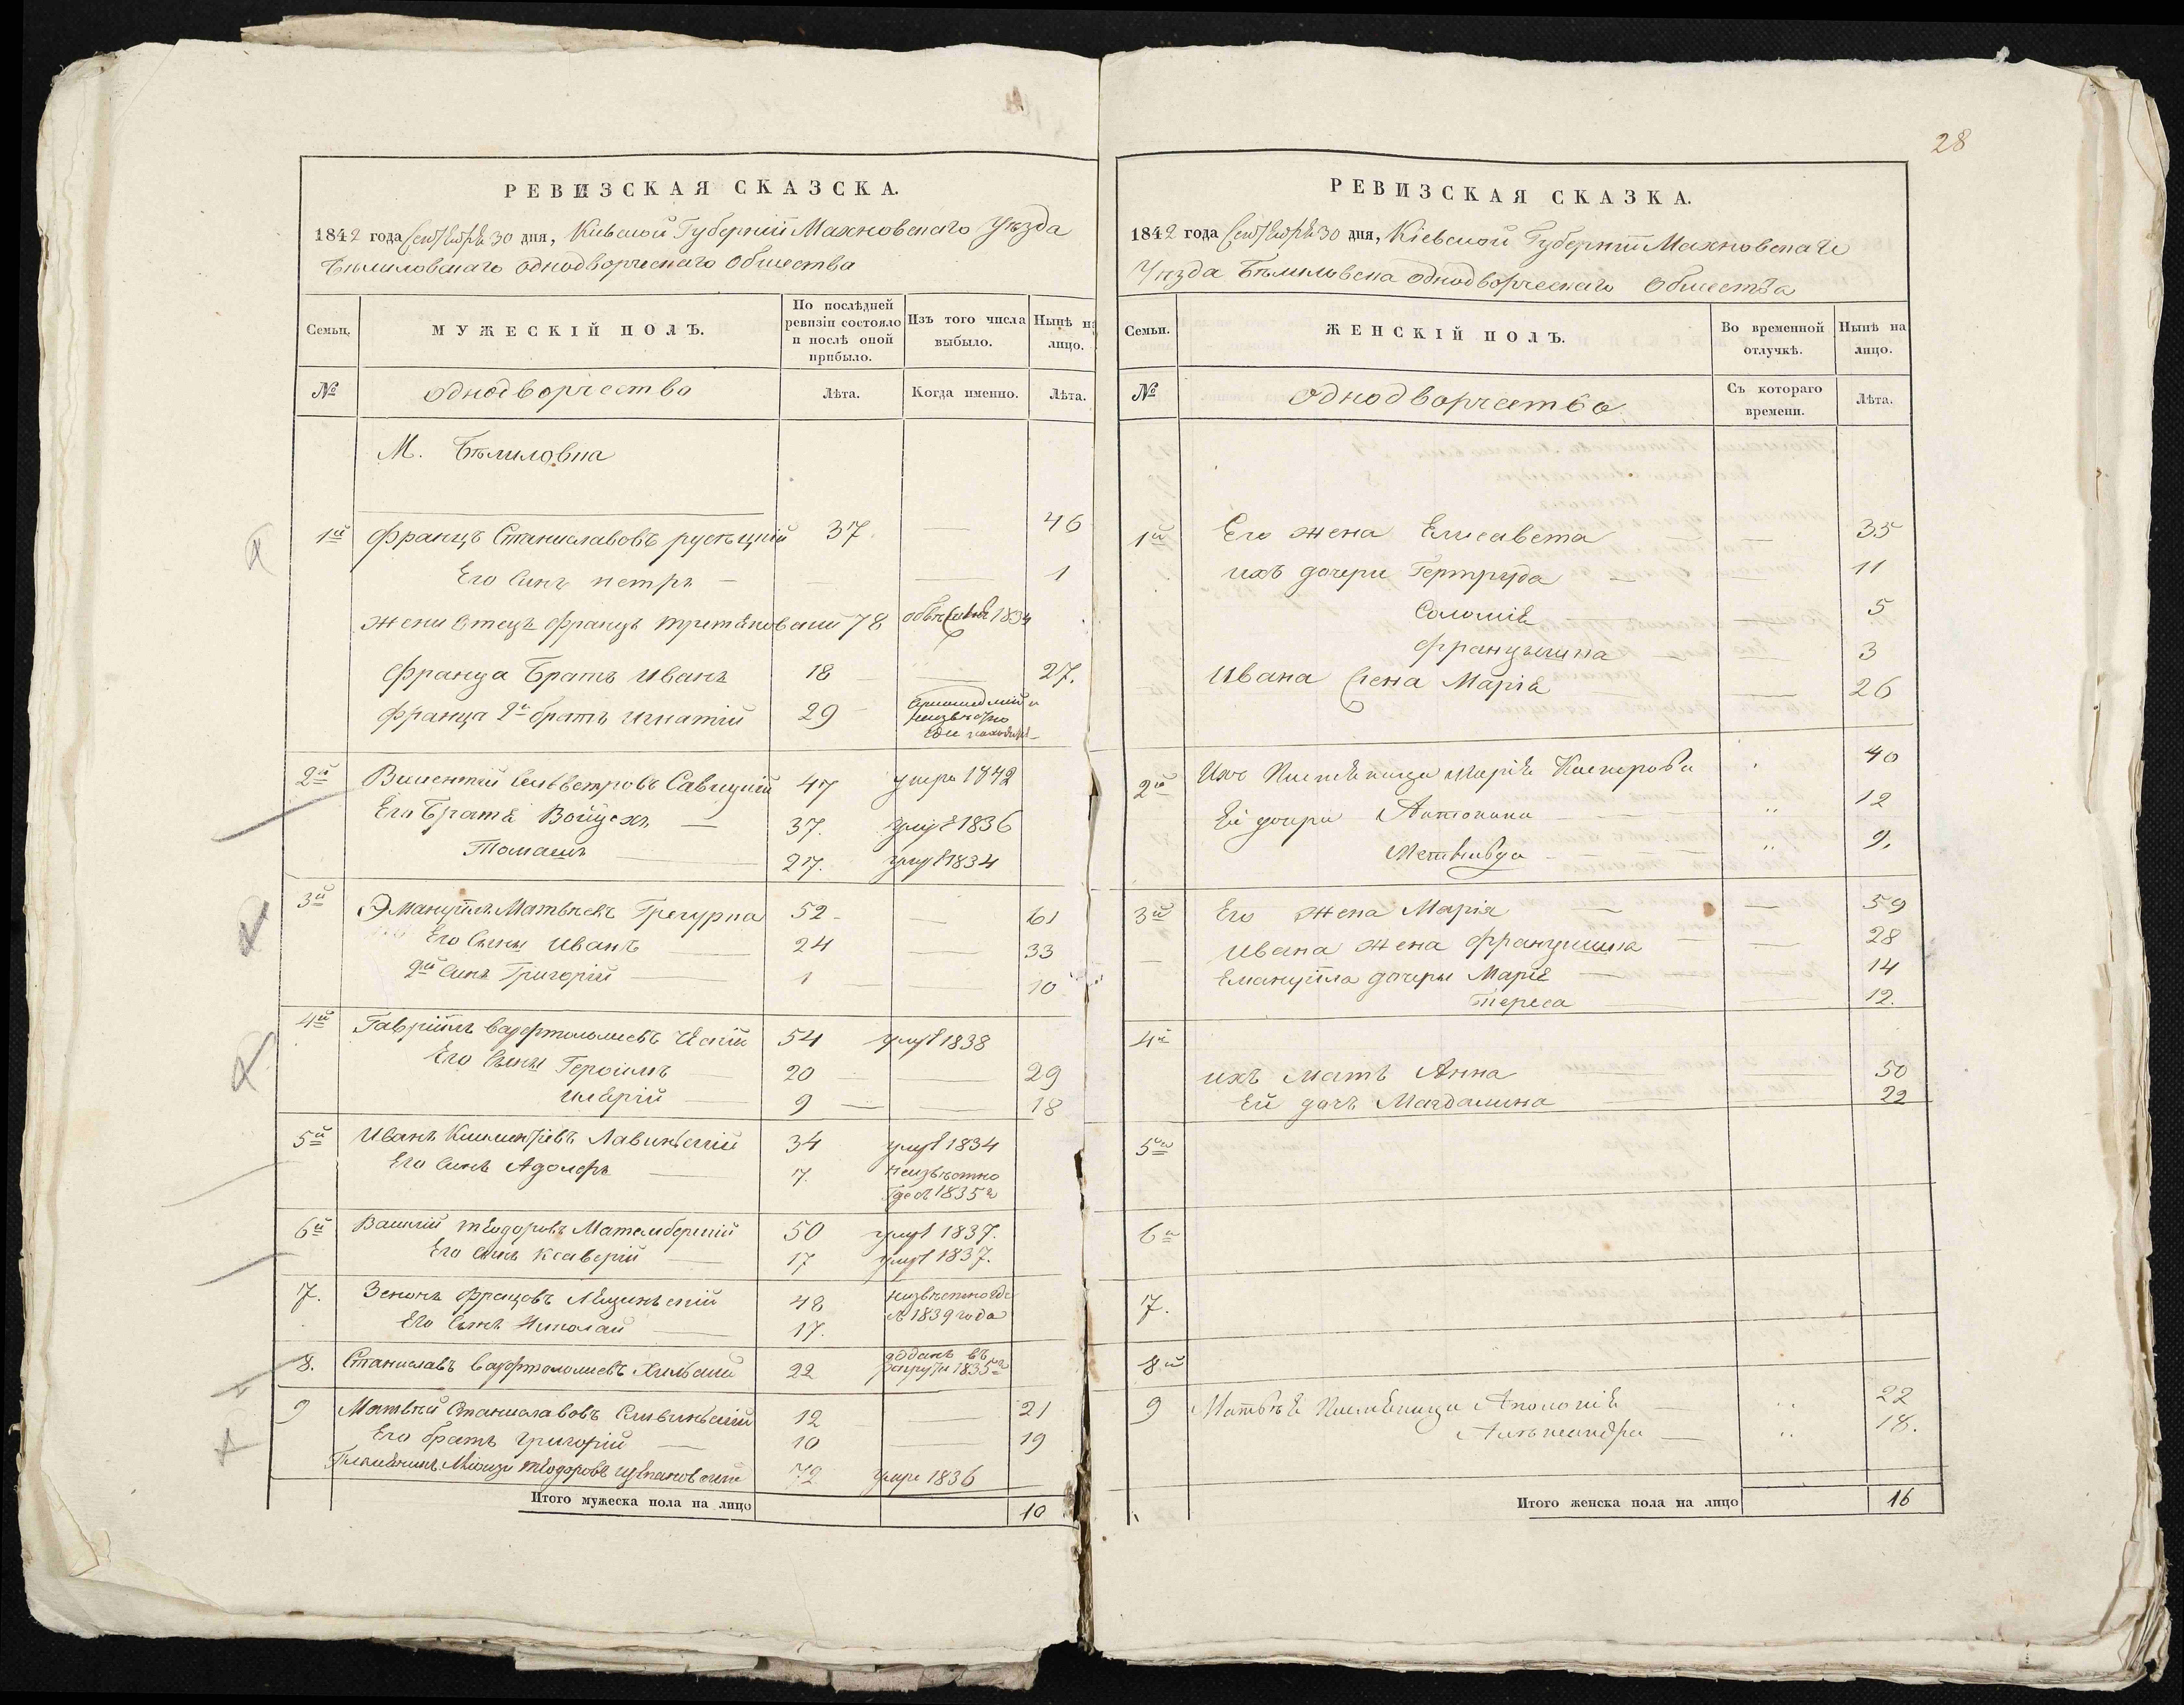 28
РЕВИЗСКАЯ СКАЗСКА.
1842 года Сентября 30 дня, Кіевской Губерніи Махновскаго Уѣзда
Бѣлиловскаго однодворческаго Общества
Семьи.
МУЖЕСКІЙ ПОЛЪ.
По послѣдней ревизіи состояло и послѣ оной прибыло.
Изъ того числа выбыло.
Нынѣ на лицо.
№
однодворчества
Лѣта.
Когда именно.
Лѣта.
М. Бѣлиловка
1й Францъ Станиславовъ 37 — 46
Его Синъ петръ — — — 1
жени Отецъ Францъ 78 1834
Франца Братъ Иванъ 18 — 27.
Франца 2й братъ игнатій 29 —
2й Викентій Савицкій 47 умре 1842
Его Братъ Войцехъ — 37. умре 1836
Томашъ — 27. умре 1834
3й Эмануилъ Матвѣевъ Грегурка 52 — 61
Его Сыны Иванъ — 24 — 33
2й Синъ Григорій — 1 — 10
4й Гавріилъ варфтоломиевъ 54 умре 1838
Его Сыны — 20 — 29
— 9 — 18
5й Иванъ 34 умре 1834
Его Синъ Адолфъ — 7. неизвѣстно
где съ 1835 г
6й Василій теодоровъ 50 умре 1837.
Его синъ ксаверій — 17 умре 1837.
7. Зенонъ Францовъ 48 неизвѣстно где
съ 1839 года
Его Сынъ Николай — 17.
8. Станиславъ варфтоломиевъ 22 отданъ въ
рекруты 1835 г
9 Матвѣй Станиславовъ Сливинскій 12 — 21
Его братъ григорій — 10 — 19
теодоровъ 72 умре 1836
Итого мужеска пола на лицо 10
РЕВИЗСКАЯ СКАЗКА.
1842 года Сентября 30 дня, Кіевской Губерніи Махновскаго
Уѣзда Бѣлиловска однодворческаго Общества
Семьи.
ЖЕНСКІЙ ПОЛЪ.
Во временной отлучкѣ.
Нынѣ на лицо.
№
однодворчества
Съ котораго времени.
Лѣта.
1й Его жена Елисавета — 35
ихъ дочери Гертруда — 11
Соломія — 5
— 3
Ивана жена Марія — 26
2й Ихъ племяница марія 40
Ей дочери Антонина — " 12
— " 9.
3й Его жена Марія — 59
Ивана жена францишка — 28
Емануила дочеры Марія — 14
тереса — 12.
4й
ихъ мать Анна — 50
Ей дочь Магдалина — 22
5й
6й
7.
8й
9 Матвѣя племяница Аполонія — " 22
Александра — " 18.
Итого женска пола на лицо 16